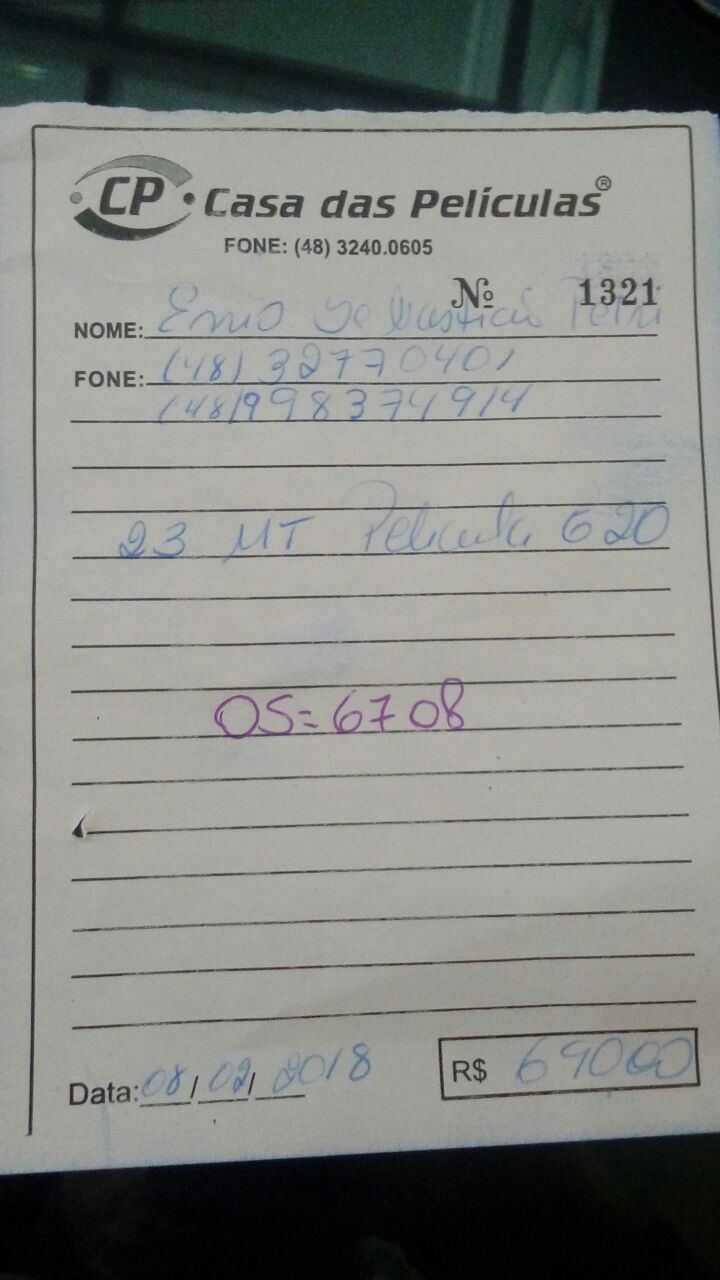 CP Casa das Películas®
FONE: (48) 3240.0605
Nº 1321
NOME: Enio Sebastião Petri
FONE: (48) 32770401
(48) 998374914
23 MT Pelicula G20
OS=6708
Data: 08/02/2018
R$ 69000